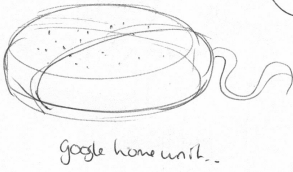 google home unit..